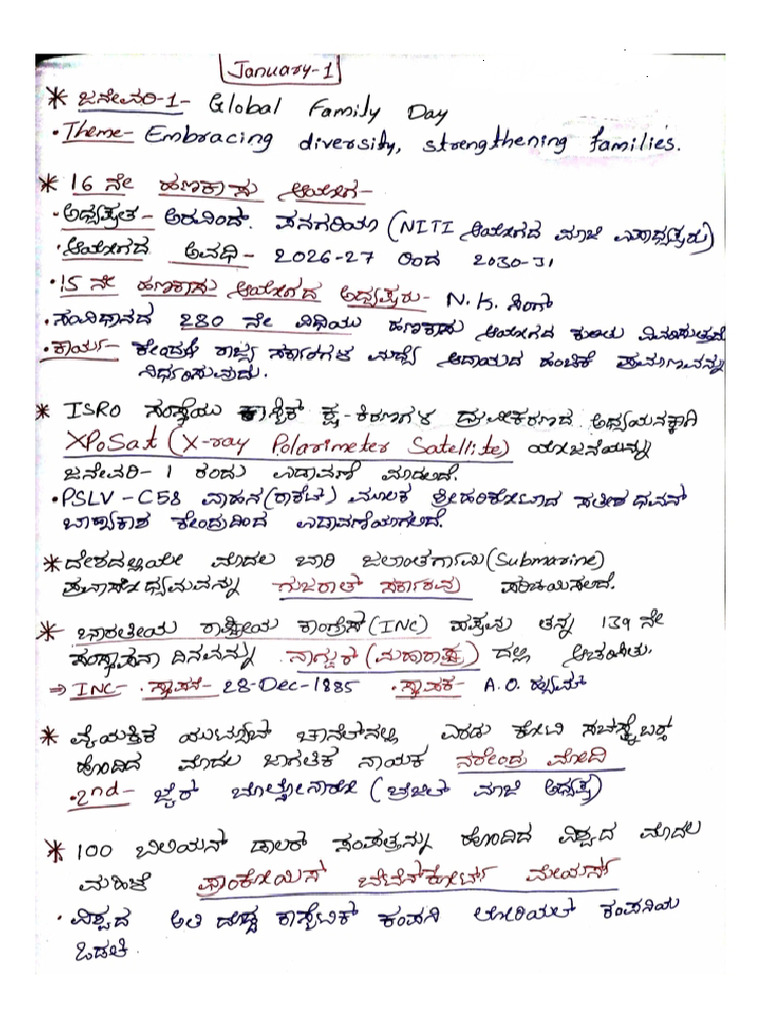 January-1
* ಜನೇವರಿ-1- Global Family Day
• Theme- Embracing diversity, strengthening families.
* 16 ನೇ ಹಣಕಾಸು ಆಯೋಗ-
• ಅಧ್ಯಕ್ಷತೆ - ಅರವಿಂದ್. ಪನಗರಿಯಾ (NITI ಆಯೋಗದ ಮಾಜಿ ಉಪಾಧ್ಯಕ್ಷರು)
• ಆಯೋಗದ ಅವಧಿ - 2026-27 ರಿಂದ 2030-31
• 15 ನೇ ಹಣಕಾಸು ಆಯೋಗದ ಅಧ್ಯಕ್ಷರು- N.K. ಸಿಂಗ್
• ಸಂವಿಧಾನದ 280 ನೇ ವಿಧಿಯು ಹಣಕಾಸು ಆಯೋಗದ ಕುರಿತು ವಿವರಿಸುತ್ತದೆ
• ಕಾರ್ಯ- ಕೇಂದ್ರ & ರಾಜ್ಯ ಸರ್ಕಾರಗಳ ಮಧ್ಯೆ ಆದಾಯದ ಹಂಚಿಕೆ ಪ್ರಮಾಣವನ್ನು
ನಿರ್ಧರಿಸುವುದು.
* ISRO ಸಂಸ್ಥೆಯು ಕಾಸ್ಮಿಕ್ ಕ್ಷ-ಕಿರಣಗಳ ಧ್ರುವೀಕರಣದ ಅಧ್ಯಯನಕ್ಕಾಗಿ
XPoSat (X-ray Polarimeter Satellite) ಯೋಜನೆಯನ್ನು
ಜನೇವರಿ-1 ರಂದು ಉಡಾವಣೆ ಮಾಡಲಿದೆ.
• PSLV-C58 ವಾಹನ(ರಾಕೆಟ್) ಮೂಲಕ ಶ್ರೀಹರಿಕೋಟಾದ ಸತೀಶ ಧವನ್
ಬಾಹ್ಯಾಕಾಶ ಕೇಂದ್ರದಿಂದ ಉಡಾವಣೆಯಾಗಲಿದೆ.
* ದೇಶದಲ್ಲಿಯೇ ಮೊದಲ ಬಾರಿ ಜಲಾಂತರ್ಗಾಮಿ(Submarine)
ಪ್ರವಾಸೋಧ್ಯಮವನ್ನು ಗುಜರಾತ್ ಸರ್ಕಾರವು ಪರಿಚಯಿಸಲಿದೆ.
* ಭಾರತೀಯ ರಾಷ್ಟ್ರೀಯ ಕಾಂಗ್ರೆಸ್(INC) ಪಕ್ಷವು ತನ್ನ 139 ನೇ
ಸಂಸ್ಥಾಪನಾ ದಿನವನ್ನು ನಾಗ್ಪುರ್ (ಮಹಾರಾಷ್ಟ್ರ) ದಲ್ಲಿ ಆಚರಿಸಿತು.
⇒ INC- • ಸ್ಥಾಪನೆ- 28-Dec-1885 • ಸ್ಥಾಪಕ- A.O. ಹ್ಯೂಮ್
* ವೈಯಕ್ತಿಕ ಯುಟ್ಯೂಬ್ ಚಾನೆಲ್‌ನಲ್ಲಿ ಎರಡು ಕೋಟಿ ಸಬ್‌ಸ್ಕ್ರೈಬರ್ಸ್
ಹೊಂದಿದ ಮೊದಲ ಜಾಗತಿಕ ನಾಯಕ ನರೇಂದ್ರ ಮೋದಿ
• 2nd- ಜೈರ್ ಬೋಲ್ಸೋನಾರೋ (ಬ್ರೆಜಿಲ್ ಮಾಜಿ ಅಧ್ಯಕ್ಷ)
* 100 ಬಿಲಿಯನ್ ಡಾಲರ್ ಸಂಪತ್ತನ್ನು ಹೊಂದಿದ ವಿಶ್ವದ ಮೊದಲ
ಮಹಿಳೆ ಫ್ರಾಂಕೋಯಿಸ್ ಬೆಟೆನ್‌ಕೋರ್ಟ್ ಮೇಯರ್ಸ್
• ವಿಶ್ವದ ಅತಿ ದೊಡ್ಡ ಕಾಸ್ಮೆಟಿಕ್ ಕಂಪನಿ ಲೋರಿಯಲ್ ಕಂಪನಿಯ
ಒಡತಿ.